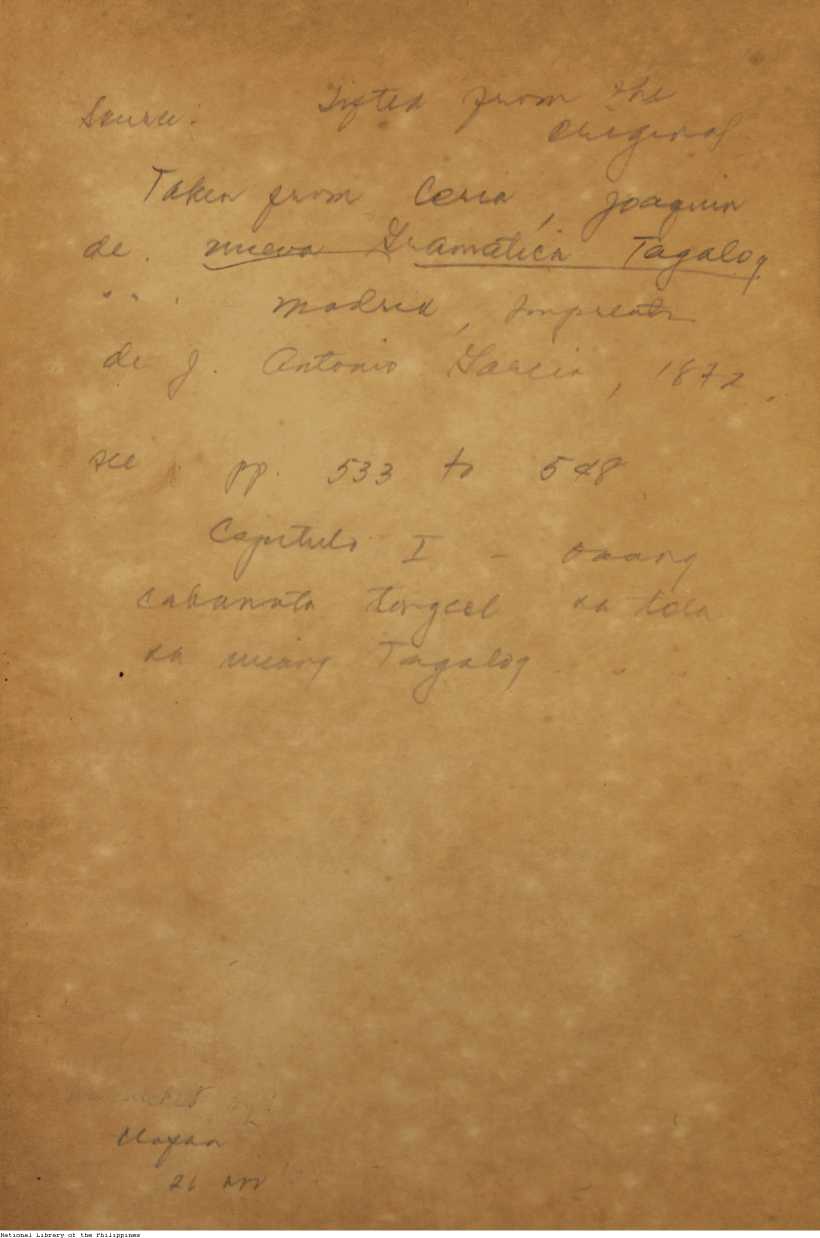 Source: Lifted from the
original
Taken from Coria, Joaquin
de. Nueva Gramatica Tagalog
" " . Madrid, Imprenta
de J. Antonio Garcia, 1872.
see pp. 533 to 548
Capitulo I - 
cabanata tongcol sa tola
sa wicang Tagalog

National Library of the Philippines